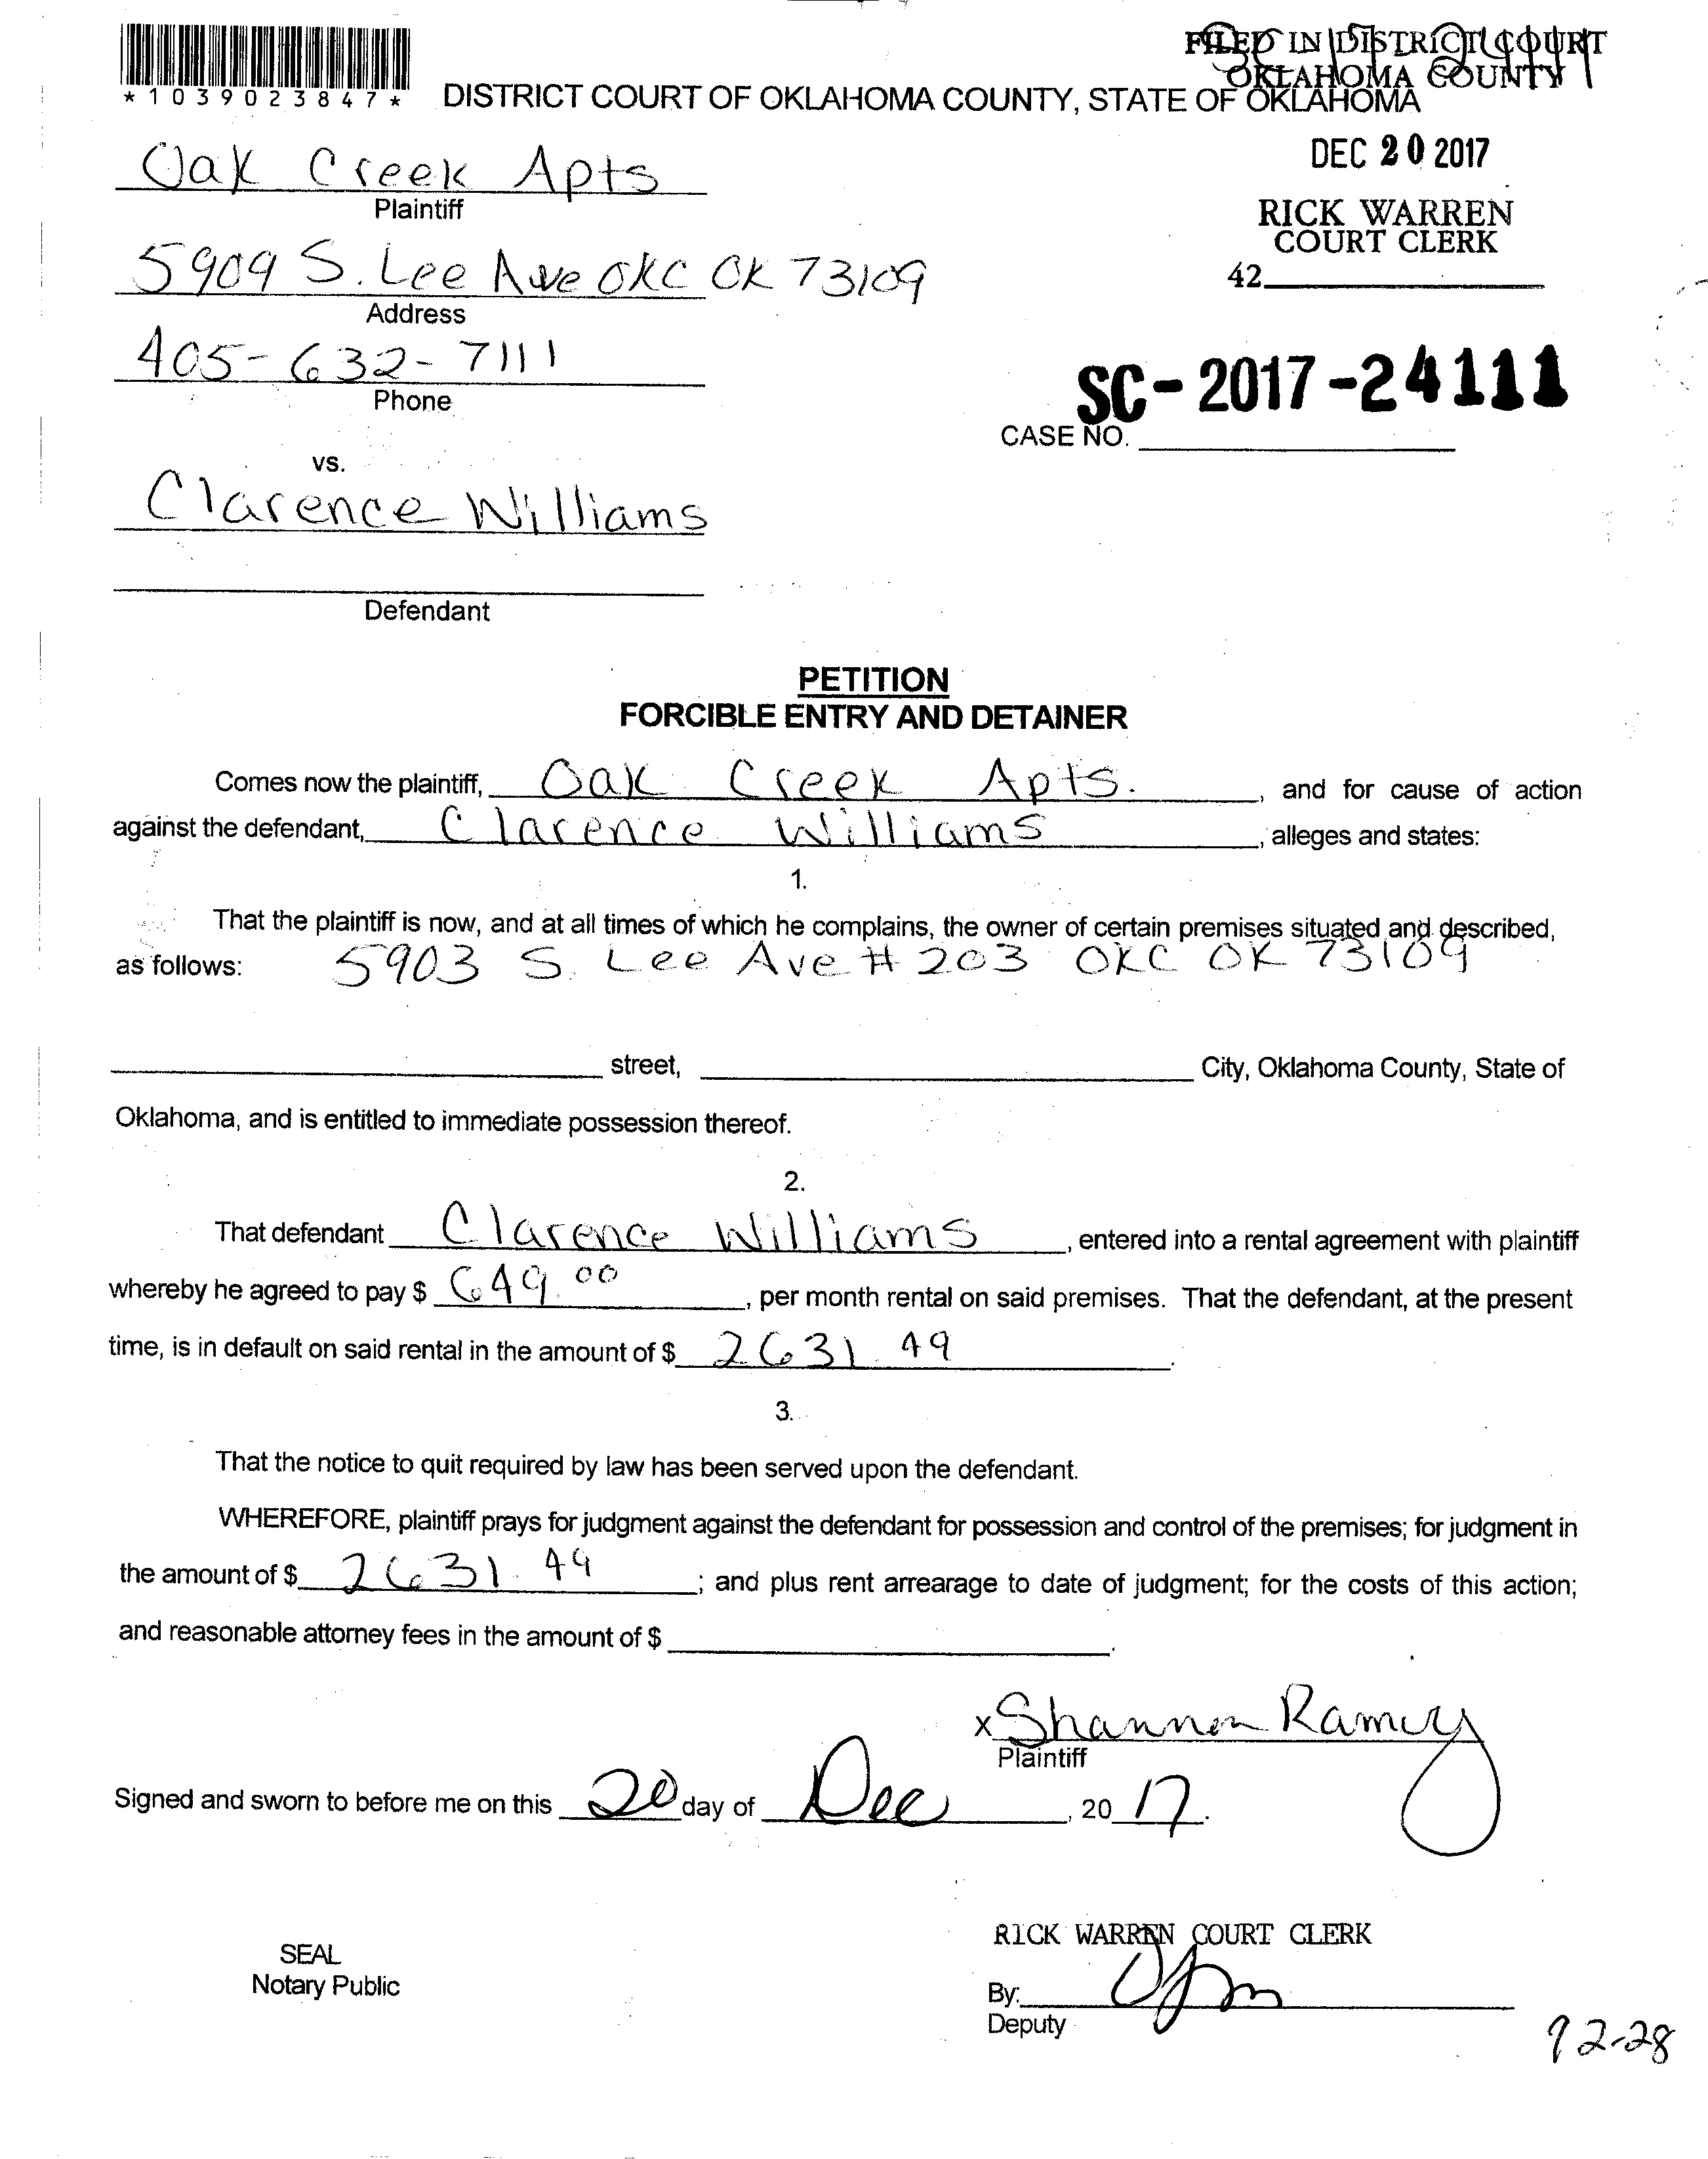 FILED IN DISTRICT COURT
OKLAHOMA COUNTY
*1039023847*
DISTRICT COURT OF OKLAHOMA COUNTY, STATE OF OKLAHOMA
DEC 20 2017
Oak Creek Apts
Plaintiff
RICK WARREN
COURT CLERK
42
5909 S. Lee Ave OKC OK 73109
Address
405-632-7111
Phone
SC-2017-24111
CASE NO.
vs.
Clarence Williams
Defendant
PETITION
FORCIBLE ENTRY AND DETAINER
Comes now the plaintiff, Oak Creek Apts. , and for cause of action
against the defendant, Clarence Williams , alleges and states:
1.
That the plaintiff is now, and at all times of which he complains, the owner of certain premises situated and described,
as follows: 5903 S. Lee Ave # 203 OKC OK 73109
street, City, Oklahoma County, State of
Oklahoma, and is entitled to immediate possession thereof.
2.
That defendant Clarence Williams , entered into a rental agreement with plaintiff
whereby he agreed to pay $ 649.00 , per month rental on said premises. That the defendant, at the present
time, is in default on said rental in the amount of $ 2631.49 .
3.
That the notice to quit required by law has been served upon the defendant.
WHEREFORE, plaintiff prays for judgment against the defendant for possession and control of the premises; for judgment in
the amount of $ 2631.49 ; and plus rent arrearage to date of judgment; for the costs of this action;
and reasonable attorney fees in the amount of $ .
x Shannon Ramey
Plaintiff
Signed and sworn to before me on this 20 day of Dec , 20 17.
RICK WARREN COURT CLERK
SEAL
Notary Public
By:
Deputy